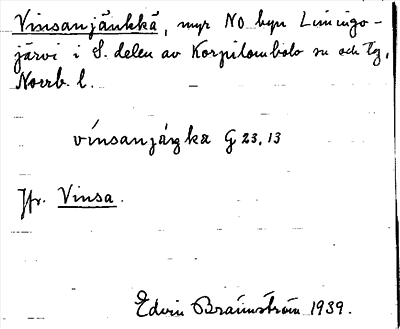 Vinsanjänkkä, myr NO byn Liningo-
järvi i S. delen av Korpilombolo sn och tg,
Norrb. l.
vínsanjäŋkä G 23, 13
Jfr. Vinsa.
Edvin Brännström 1939.